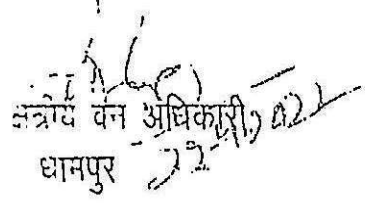 क्षेत्रीय वन अधिकारी,
धामपुर